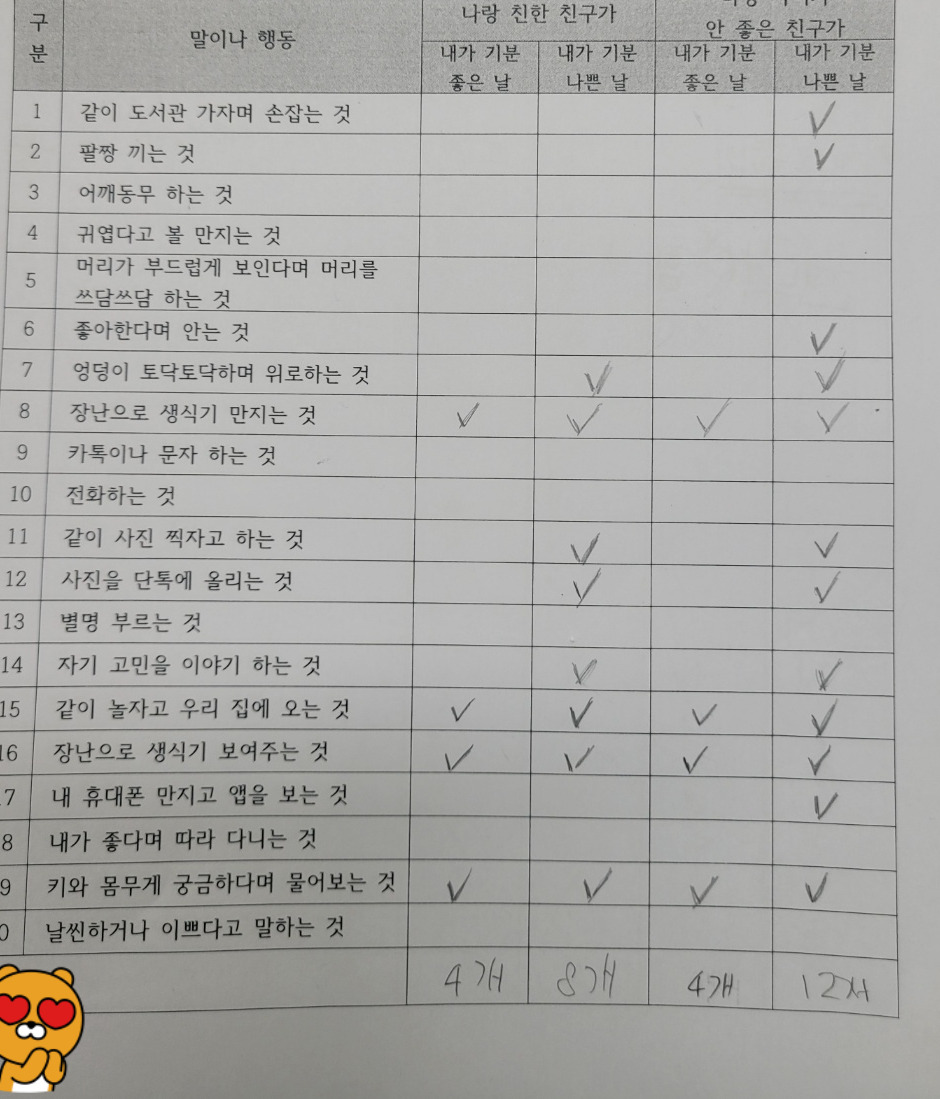 구
분
말이나 행동
나랑 친한 친구가
안 좋은 친구가
내가 기분
좋은 날
내가 기분
나쁜 날
내가 기분
좋은 날
내가 기분
나쁜 날
1 같이 도서관 가자며 손잡는 것 ✓
2 팔짱 끼는 것 ✓
3 어깨동무 하는 것
4 귀엽다고 볼 만지는 것
5 머리가 부드럽게 보인다며 머리를
쓰담쓰담 하는 것
6 좋아한다며 안는 것 ✓
7 엉덩이 토닥토닥하며 위로하는 것 ✓ ✓
8 장난으로 생식기 만지는 것 ✓ ✓ ✓ ✓
9 카톡이나 문자 하는 것
10 전화하는 것
11 같이 사진 찍자고 하는 것 ✓ ✓
12 사진을 단톡에 올리는 것 ✓ ✓
13 별명 부르는 것
14 자기 고민을 이야기 하는 것 ✓ ✓
15 같이 놀자고 우리 집에 오는 것 ✓ ✓ ✓ ✓
16 장난으로 생식기 보여주는 것 ✓ ✓ ✓ ✓
7 내 휴대폰 만지고 앱을 보는 것 ✓
8 내가 좋다며 따라 다니는 것
9 키와 몸무게 궁금하다며 물어보는 것 ✓ ✓ ✓ ✓
0 날씬하거나 이쁘다고 말하는 것
4개 8개 4개 12개